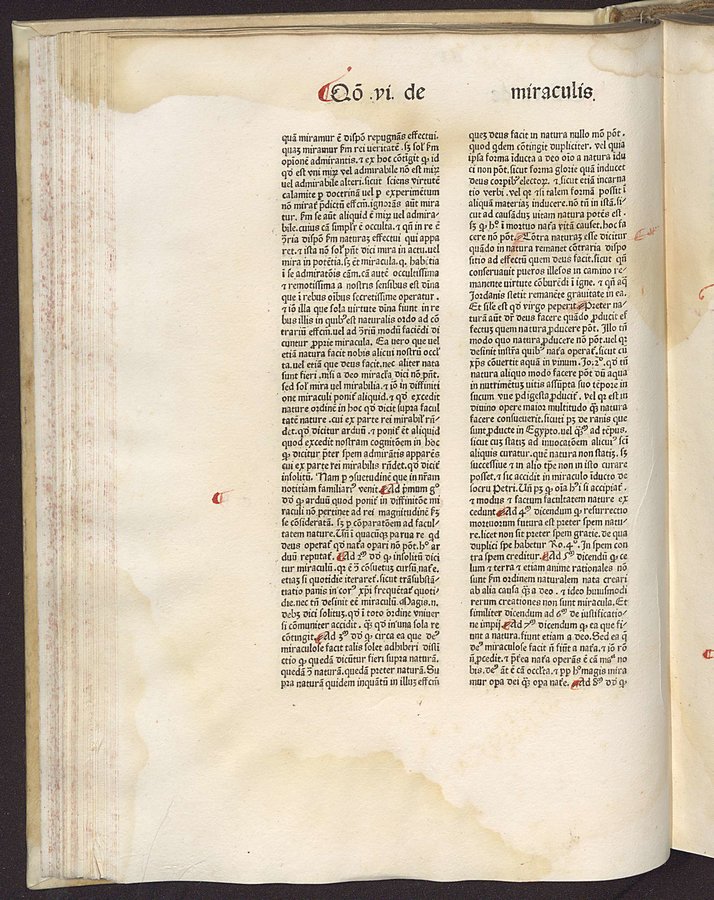 Qō .vi. de miraculis.
quā miramur ē dispō repugnās effectui.
quaȝ miramur ẜm rei veritatē. sȝ solʼ ẜm
opionē admirantis. ⁊ ex hoc cōtigit ꝙ id
qd̓ est vni mirꝫ vel admirabile nō est mirꝫ
uel admirabile alteri. sicut sciens virtutē
calamite ꝑ doctrinā uel ꝑ experimētum
nō mirat᷑ p̄dictū effcm̄. ignorās aūt mira
tur. ẜm se aūt aliquid ē mirꝫ uel admira-
bile. cuius cā simplr̄ ē occulta. ⁊ qn̄ in re ē
ꝯ̄ria dispō ẜm naturaȝ effectui qui appa
ret. ⁊ ista nō solʼ pn̄t dici mira in actu. uel
mira in potētia. sȝ et miracula. q. habētia
ī se admiratōis cām. cā autē occultissima
⁊ remotissima a nostris sensibus est dīna
que ī rebus oībus secretissime operatur.
⁊ iō illa que sola virtute dīna fiunt in re
bus illis in quibꝰ est naturalis ordo ad cō
trariū effcm̄. uel ad ꝯ̄riū modū faciēdi di
cuntur ꝓprie miracula. Ea vero que vel
etiā natura facit nobis alicui nostrū occl̓
ta. uel etiā que deus facit. nec aliter nata
sunt fieri. nisi a deo miracl̓a dici nō pn̄t.
sed sol̓ mira uel mirabilia. ⁊ iō in diffiniti
one miraculi ponit᷑ aliquid. ꝙ qd̓ excedit
nature ordinē in hoc qd̓ dicit supra facul
tatē nature. cui ex parte rei mirabil̓ rn̄-
det. qd̓ dicitur arduū. ⁊ ponit᷑ ēt aliquid
quod excedit nostram cognitōem in hoc
ꝙ dicitur p̄ter spem admirātis apparēs
cui ex parte rei mirabilis rn̄det. qd̓ dicit᷑
insolitū. Nam ꝑ ꝯsuetudinē que in nr̄am
notitiam familiariꝰ venit Ad p̄mum gͦ
dd̓ ꝙ arduū quod ponit᷑ in diffinitōe mi
raculi nō pertinet ad rei magnitudinē ẜm
se cōsideratā. sȝ ꝑ cōparatōem ad facul-
tatem nature. Un̄ ī quacūqȝ parua re qd̓
deus operat᷑ qd̓ nat᷑a opari nō pōt. hͦ ar
duū reputat᷑. Ad 2ᵐ dd̓ ꝙ insolitū dici
tur miraculū. qꝛ ē ꝯ̄ cōsuetuȝ cursū nat᷑e.
etiaȝ si quotidie iteraret᷑. sicut trāsubstā-
tiatio panis in cor᷒ xp̄i frequētat᷑ quoti-
die. nec tn̄ desinit eē miraculū. Magis. n.
debȝ dici solituȝ. qd̓ ī toto ordine vniuer
si cōmuniter accidit. qȝ qd̓ in vna sola re
cōtingit. Ad 3ᵐ dd̓ ꝙ circa ea que deꝰ
miraculose facit talis solet adhiberi disti
ctio ꝙ quedā dicūtur fieri supra naturā.
quedā ꝯ̄ naturā. quedā preter naturā. Su
pra naturā quidem inquātū in illuȝ effcm̄
queȝ deus facit in natura nullo mō pōt.
quod qdem cōtingit dupliciter. vel quia
ipsa forma iducta a deo oīo a natura idu
ci non pōt. sicut forma glorie quā inducet
deus corpibꝰ electoꝝ. ⁊ sicut etiā incarna
tio verbi. vel qꝛ ⁊si talem formā possit ī
aliquā materiaȝ inducere. nō tn̄ in istā. si-
cut ad causādū vitam natura potēs est.
sȝ ꝙ hͦ ī mortuo nat᷑a vitā causet. hoc fa
cere nō pōt. Cōtra naturaȝ esse dicitur
quādo in natura remanet cōtraria dispo
sitio ad effectū quem deus facit. sicut qn̄
conseruauit pueros illesos in camino re-
manente virtute cōburēdi ī igne. ⁊ qn̄ aq̄
Jordanis stetit remanēte grauitate in ea.
Et sile̓ est qd̓ virgo peperit. Preter na-
turā aūt dr̄ deus facere quādo ꝓducit ef
fectuȝ quem natura ꝓducere pōt. Illo tn̄
modo quo natura ꝓducere nō pōt. uel qꝛ
desinit instr̄a quibꝰ nat᷑a operat᷑. sicut cū
xp̄s cōuertit aquā in vinum. Jo. 2ͦ. qd̓ tn̄
natura aliquo modo facere pōt dū aqua
in nutrimētuȝ vitis assūpta suo tēpore in
sucum vue ꝑdigesta ꝓducit᷑. vel qꝛ est in
diuino opere maior multitudo qȝ natura
facere consueuerit. sicut pȝ de ranis que
sunt ꝓducte in Egypto. vel qꝛ ad tēpus.
sicut cuȝ statiȝ ad inuocatōem alicuiꝰ sci̓
aliquis curatur. quē natura non statiȝ. sȝ
successiue ⁊ in alio tp̄e non in isto curare
posset. ⁊ sic accidit in miraculo īducto de
socru Petri. Un̄ pȝ ꝙ oīa hͦi si accipiat᷑.
⁊ modus ⁊ factum facultatem nature ex
cedunt Ad 4ᵐ dicendum ꝙ resurrectio
mortuorum futura est preter spem natu-
re. licet non sit preter spem gratie. de qua
duplici spe habetur Ro. 4ͦ. In spem con
tra spem creditur. Ad 5ᵐ dicendū ꝙ ce-
lum ⁊ terra ⁊ etiam anime rationales nō
sunt ẜm ordinem naturalem nata creari
ab alia causa qȝ a deo. ⁊ ideo huiusmodi
rerum creationes non sunt miracula. Et
similiter dicendum ad 6ᵐ de iustificatio-
ne impij. Ad 7ᵐ dicendum ꝙ ea que fi-
unt a natura. fiunt etiam a deo. Sed ea q̄
deꝰ miraculose facit n̄ fiūt a nat᷑a. ⁊ iō rō
n̄ ꝓcedit. ⁊ p̄t᷑ea nat᷑a operās ē cā mªª no
bis. deꝰ āt ē cā occl̓ta. ⁊ pp̄ hͦ magis mira
mur opa dei qȝ opa nat᷑e. Ad 8ᵐ dd̓ ꝙ